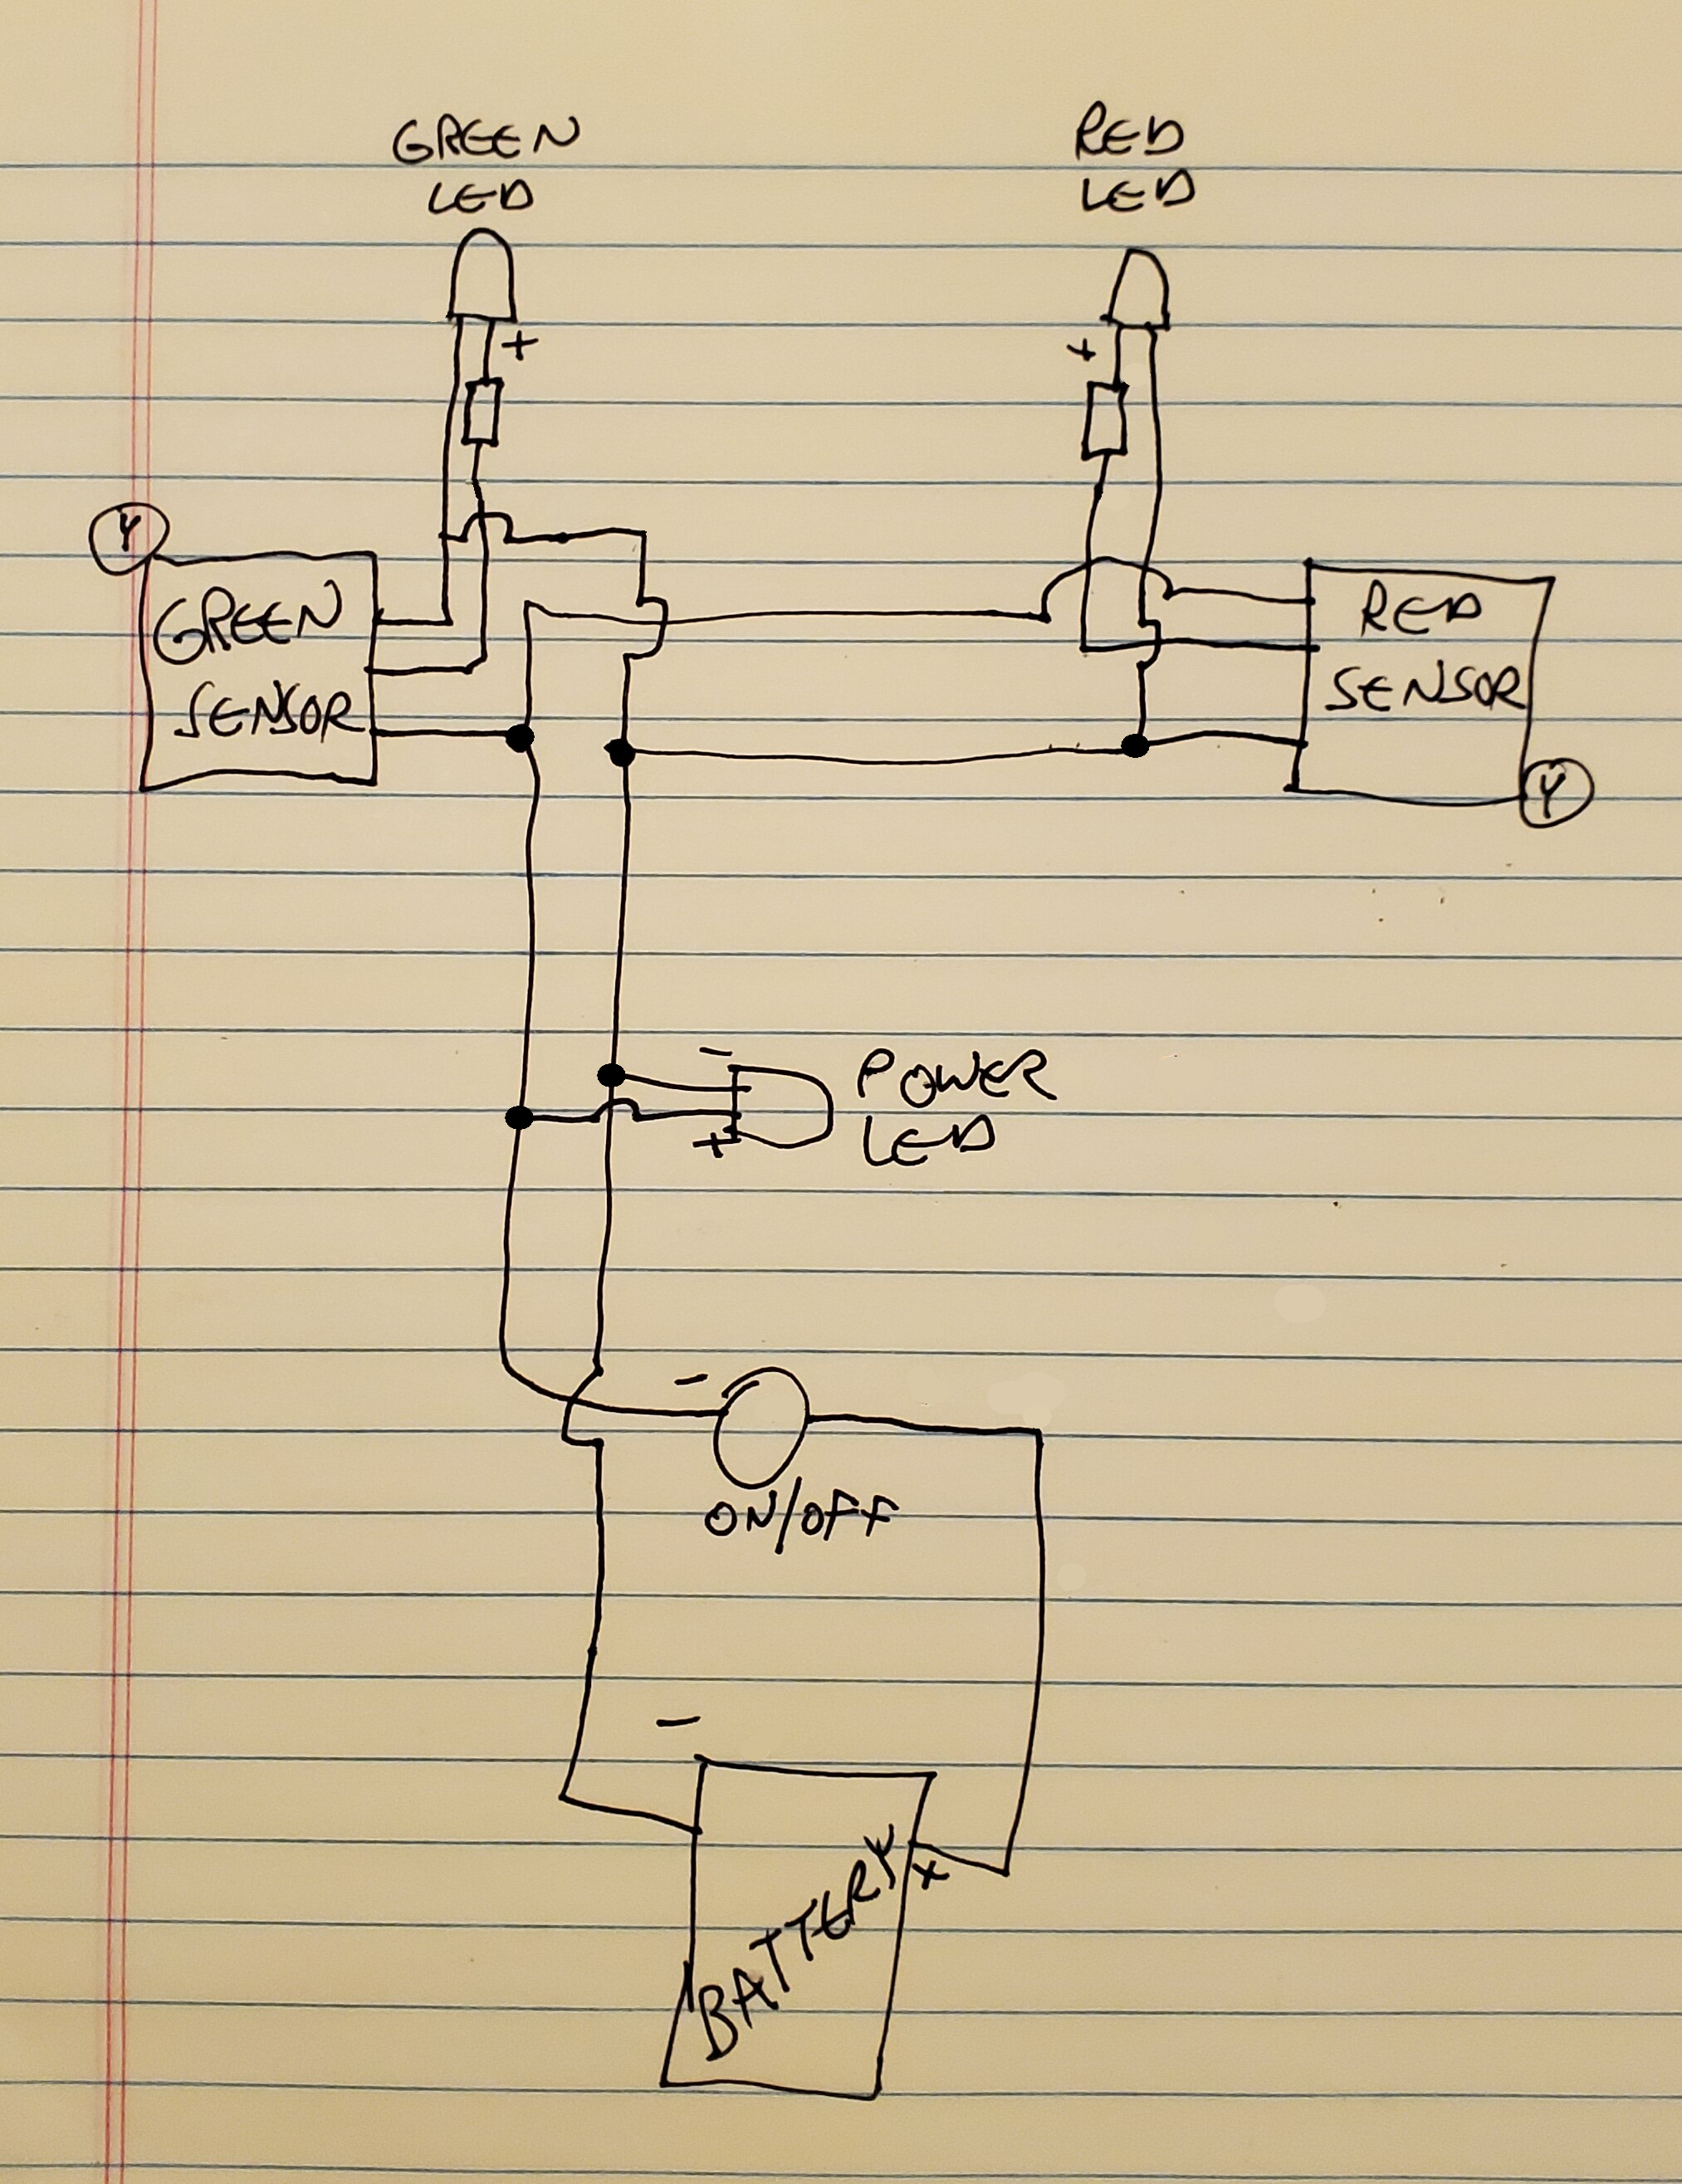 GREEN
LED
RED
LED
+
+
Y
GREEN
SENSOR
RED
SENSOR
Y
-
+
POWER
LED
-
ON/OFF
-
+
BATTERY